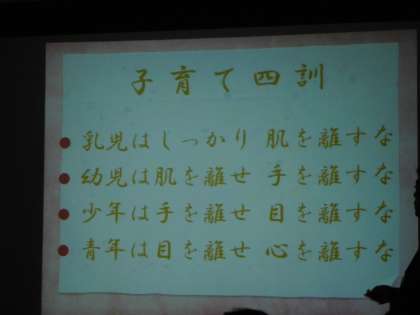 子育て四訓
乳児はしっかり 肌を離すな
幼児は肌を離せ 手を離すな
少年は手を離せ 目を離すな
青年は目を離せ 心を離すな